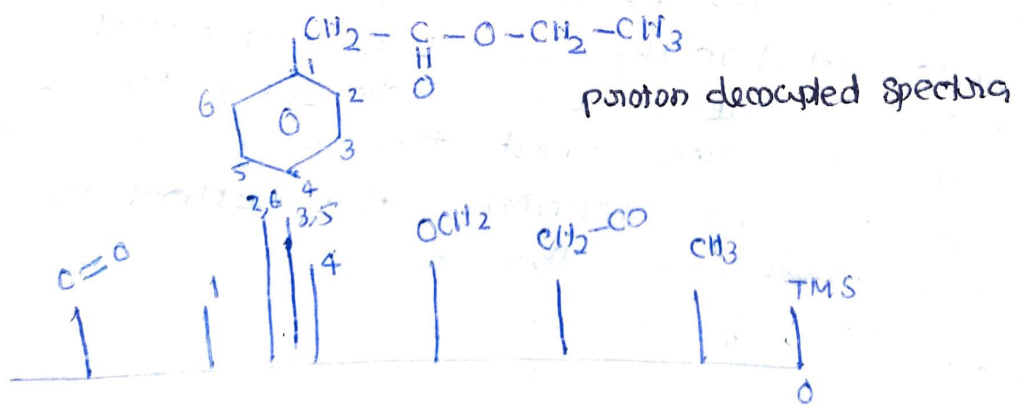 CH2 - C - O - CH2 - CH3
O
1
6
2
O
3
5
4
proton decoupled spectra
2,6
3,5
4
C=O
1
OCH2
CH2-CO
CH3
TMS
0